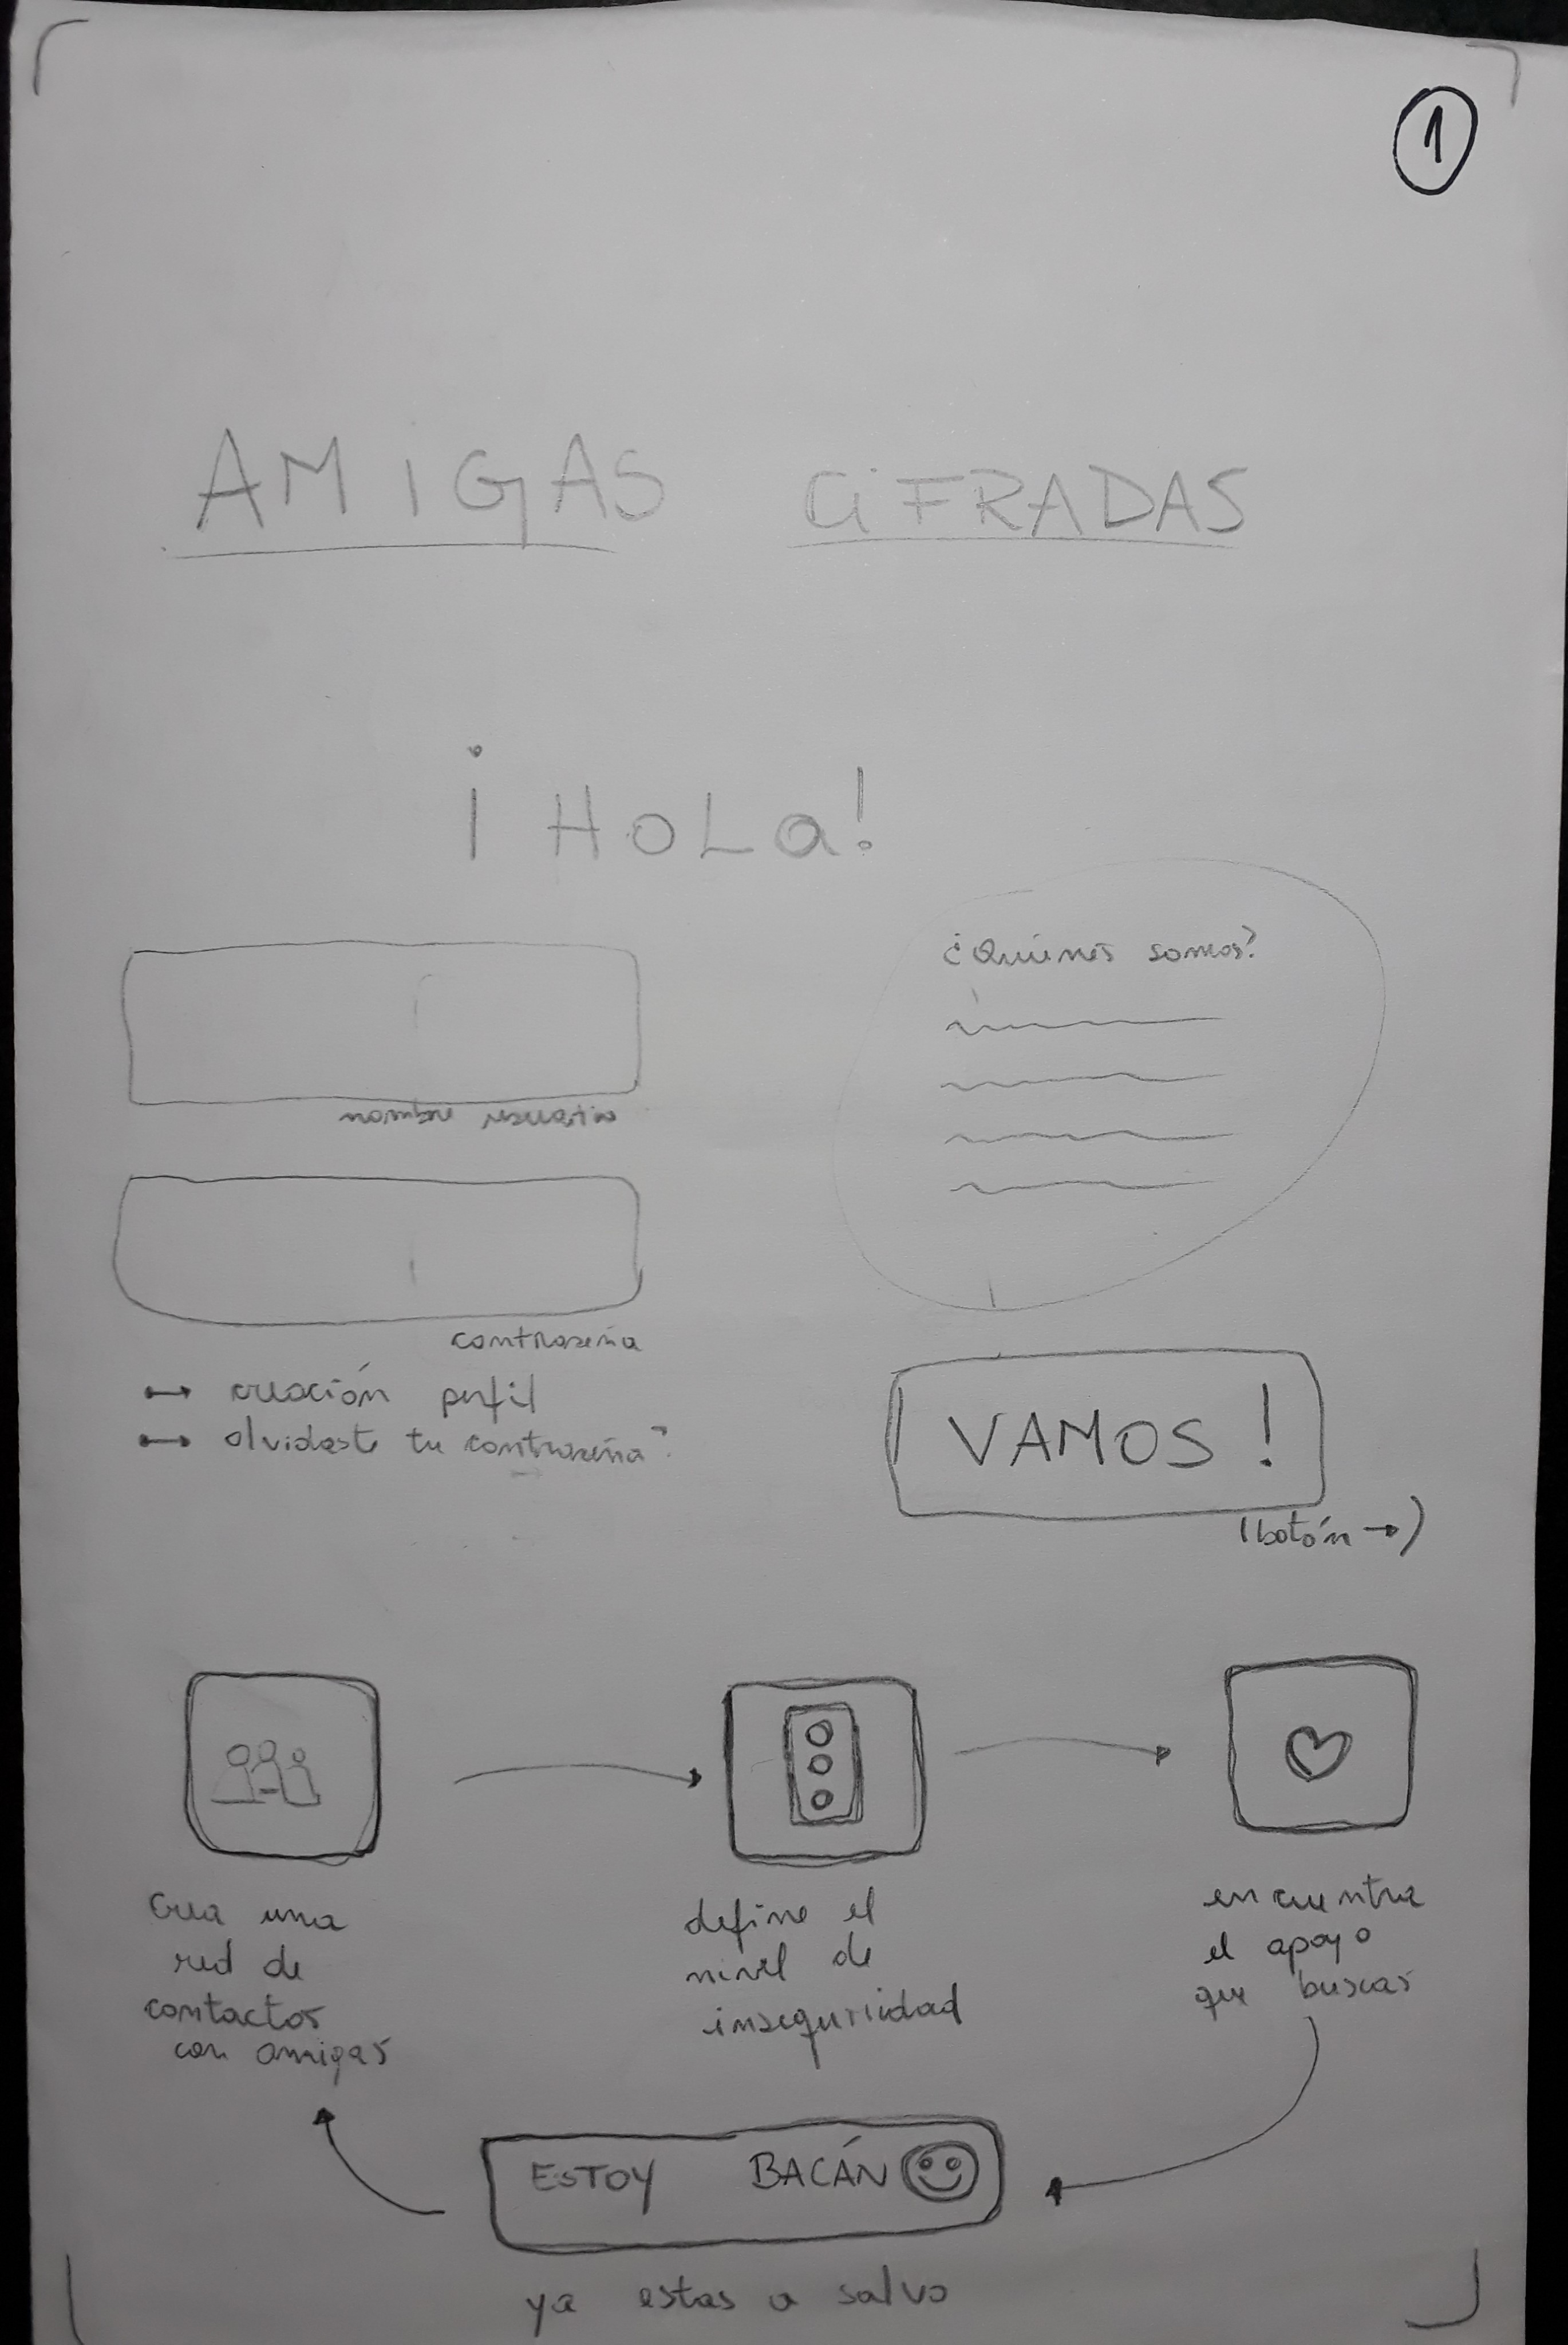 1
AMIGAS CIFRADAS
¡HOLa!
¿Quiénes somos?
nombre usuario
contraseña
↦ creación perfil
↦ olvidaste tu contraseña?
¡VAMOS!
(botón →)
crea una
red de
contactos
con amigas
define el
nivel de
inseguridad
encuentra
el apoyo
que buscas
ESTOY BACÁN
ya estas a salvo